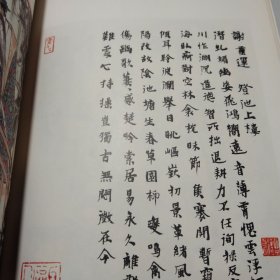 謝靈運 登池上樓
潛虬媚幽姿飛鴻響遠音薄霄愧雲浮
川怍淵沉進德智所拙退耕力不任徇祿反
海臥痾對空林衾枕昧節候褰開暫窺
傾耳聆波瀾舉目眺嶇嶔初景革緒風
陽改故陰池塘生春草園柳變鳴禽
傷豳歌萋萋感楚吟索居易永久離群
難處心持操豈獨古無悶徵在今